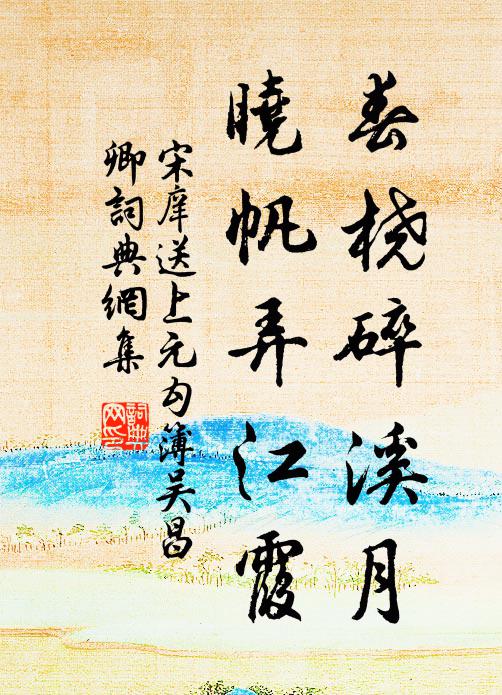 春桡碎溪月
曉帆弄江霞
宋庠送上元勾簿吴昌
卿詞典網集
詞典网印